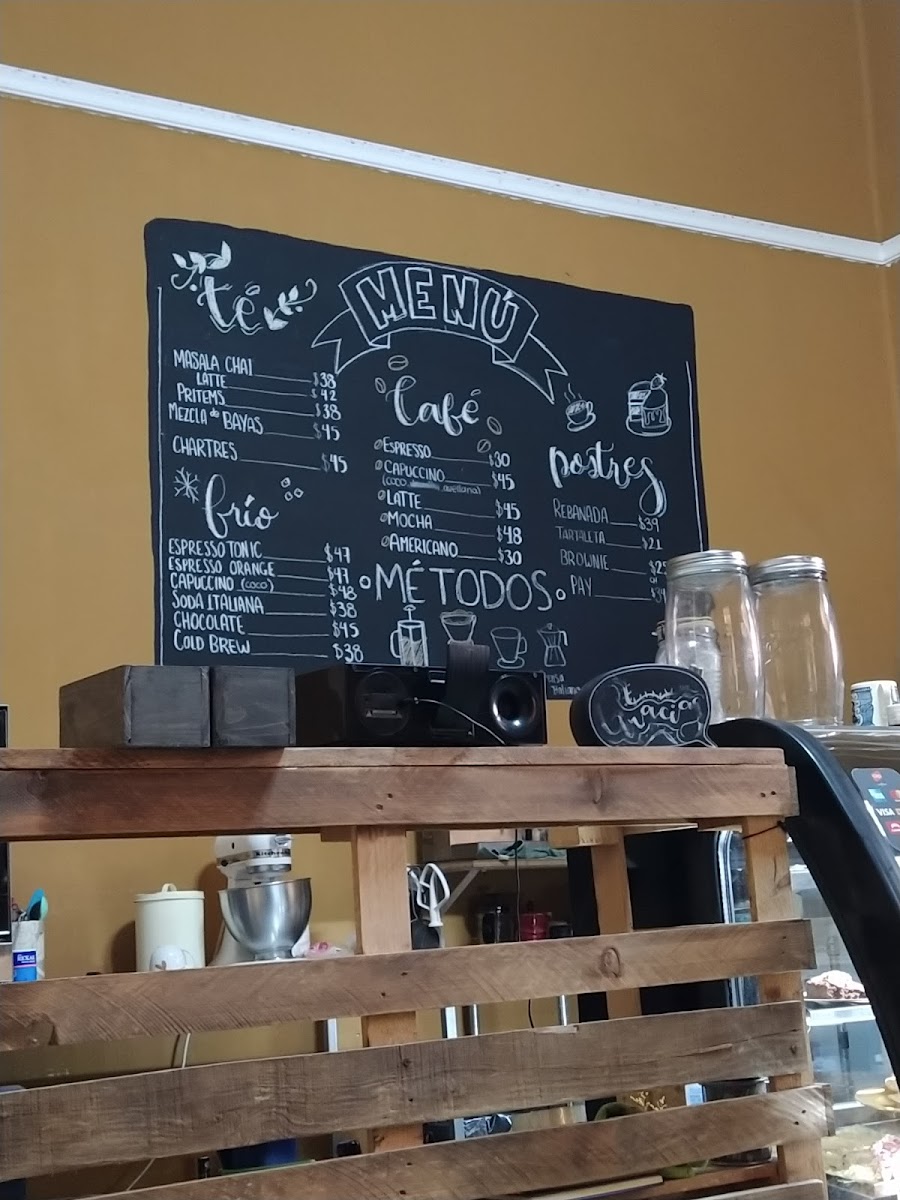 MENÚ
té
MASALA CHAI
LATTE $38
PRITEMS $42
MEZCLA de BAYAS $38
$45
CHARTRES
$45
frío
ESPRESSO TONIC $47
ESPRESSO ORANGE $47
CAPUCCINO (COCO) $48
SODA ITALIANA $38
CHOCOLATE $45
COLD BREW $38
Café
ESPRESSO $30
CAPUCCINO $45
(coco, avellana)
LATTE $45
MOCHA $48
AMERICANO $30
MÉTODOS
Postres
REBANADA $39
TARTALETA $21
BROWNIE
PAY
Italiana
Gracias
VISA